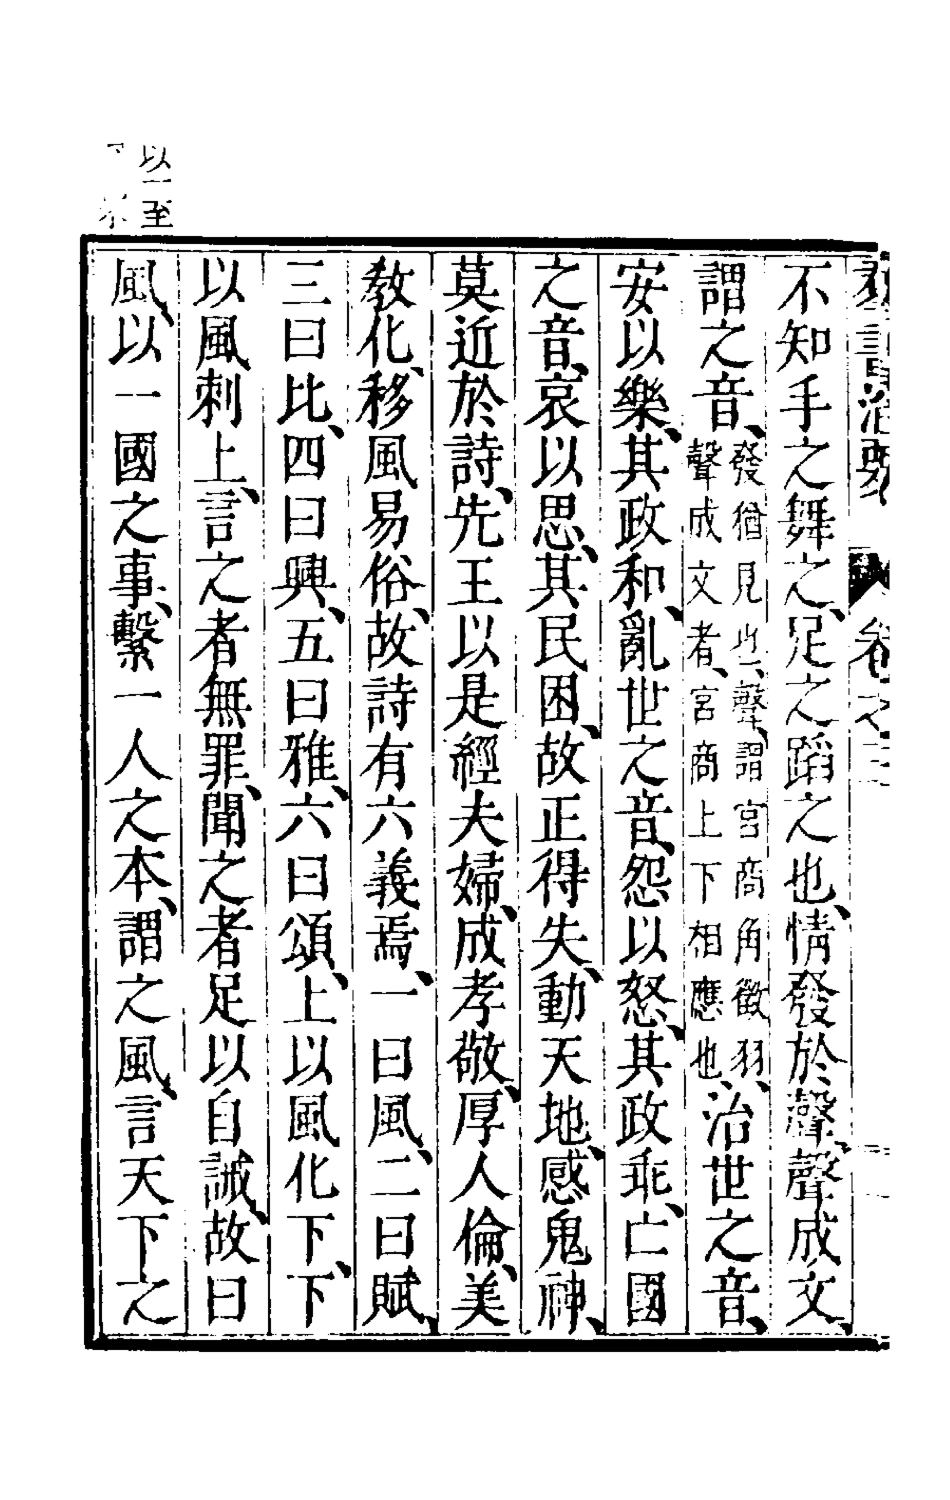 羣書治要 卷之三 二
不知手之舞之、足之蹈之也、情發於聲、聲成文、
謂之音、發猶見也、聲、謂宮商角徵羽、聲成文者、宮商上下相應也、治世之音、
安以樂、其政和、亂世之音、怨以怒、其政乖、亡國
之音、哀以思、其民困、故正得失、動天地、感鬼神、
莫近於詩、先王以是經夫婦、成孝敬、厚人倫、美
教化、移風易俗、故詩有六義焉、一曰風、二曰賦、
三曰比、四曰興、五曰雅、六曰頌、上以風化下、下
以風刺上、言之者無罪、聞之者足以自誡、故曰
風、以一國之事、繫一人之本、謂之風、言天下之
以一至